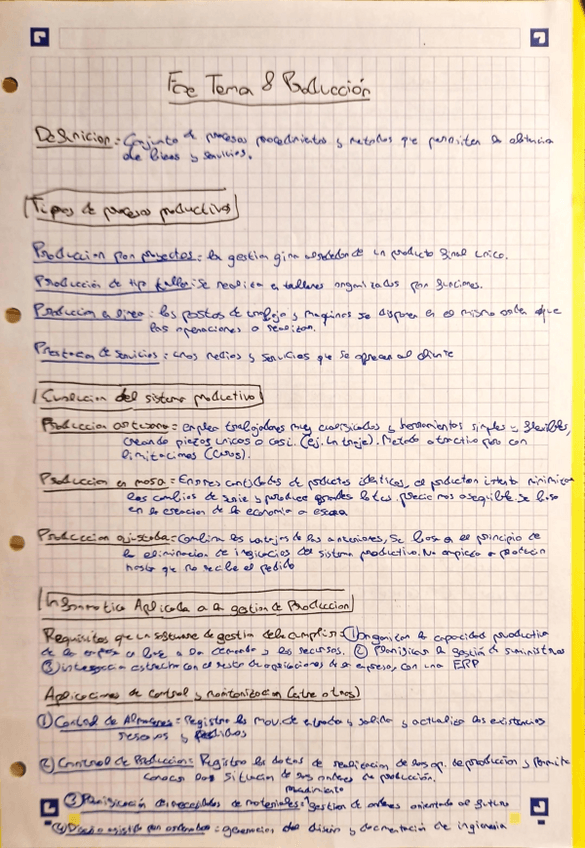 Foe Tema 8 Producción
Definicion: Conjunto de procesos procedimientos y metodos que permiten la obtencion
de bienes y servicios.
Tipos de procesos productivos
Produccion por proyectos: la gestion gira alrededor de un producto final unico.
Producción de tipo taller: Se realiza en talleres organizados por funciones.
Produccion en linea: los postos de trabajo y maquinas se disponen en el mismo orden que
las operaciones a realizar.
Prestacion de servicios: unos medios y servicios que se ofrecen al cliente
Evolucion del sistema productivo
Produccion artesana: emplea trabajadores muy cualificados y herramientos simples y flexibles,
creando piezas unicas o casi. (ej. Un traje). Metodo atractivo pero con
limitaciones (caros).
Produccion en masa: Enormes cantidades de productos identicos, el productor intenta minimizar
los cambios de serie y produce grandes lotes. precio mas asequible. Se basa
en la creacion de la economia a escala
Produccion ajustada: Combina las ventajas de las anteriores, Se basa en el principio de
la eliminacion de ineficacias del sistema productivo. No empieza a producir
hasta que no recibe el pedido
Informatica Aplicada a la gestion de Produccion
Requisitos que un software de gestion debe cumplir: ① organizar la capacidad productiva
de la empresa en base a la demanda y los recursos. ② Planificar la gestión de suministros
③ integracion estrecha con el resto de aplicaciones de la empresa, con una ERP
Aplicaciones de control y monitorizacion (entre otros)
① Control de Almacenes: Registra los mov. de entrada y salida y actualiza las existencias
reservas y pedidos
② Control de Produccion: Registra los datos de realizacion de las op. de produccion y permite
conocer la situacion de las ordenes de producción.
③ Planificación de necesidades de materiales: gestion de ordenes orientada al futuro
④ Diseño asistido por ordenador: generacion del diseño y documentación de ingenieria